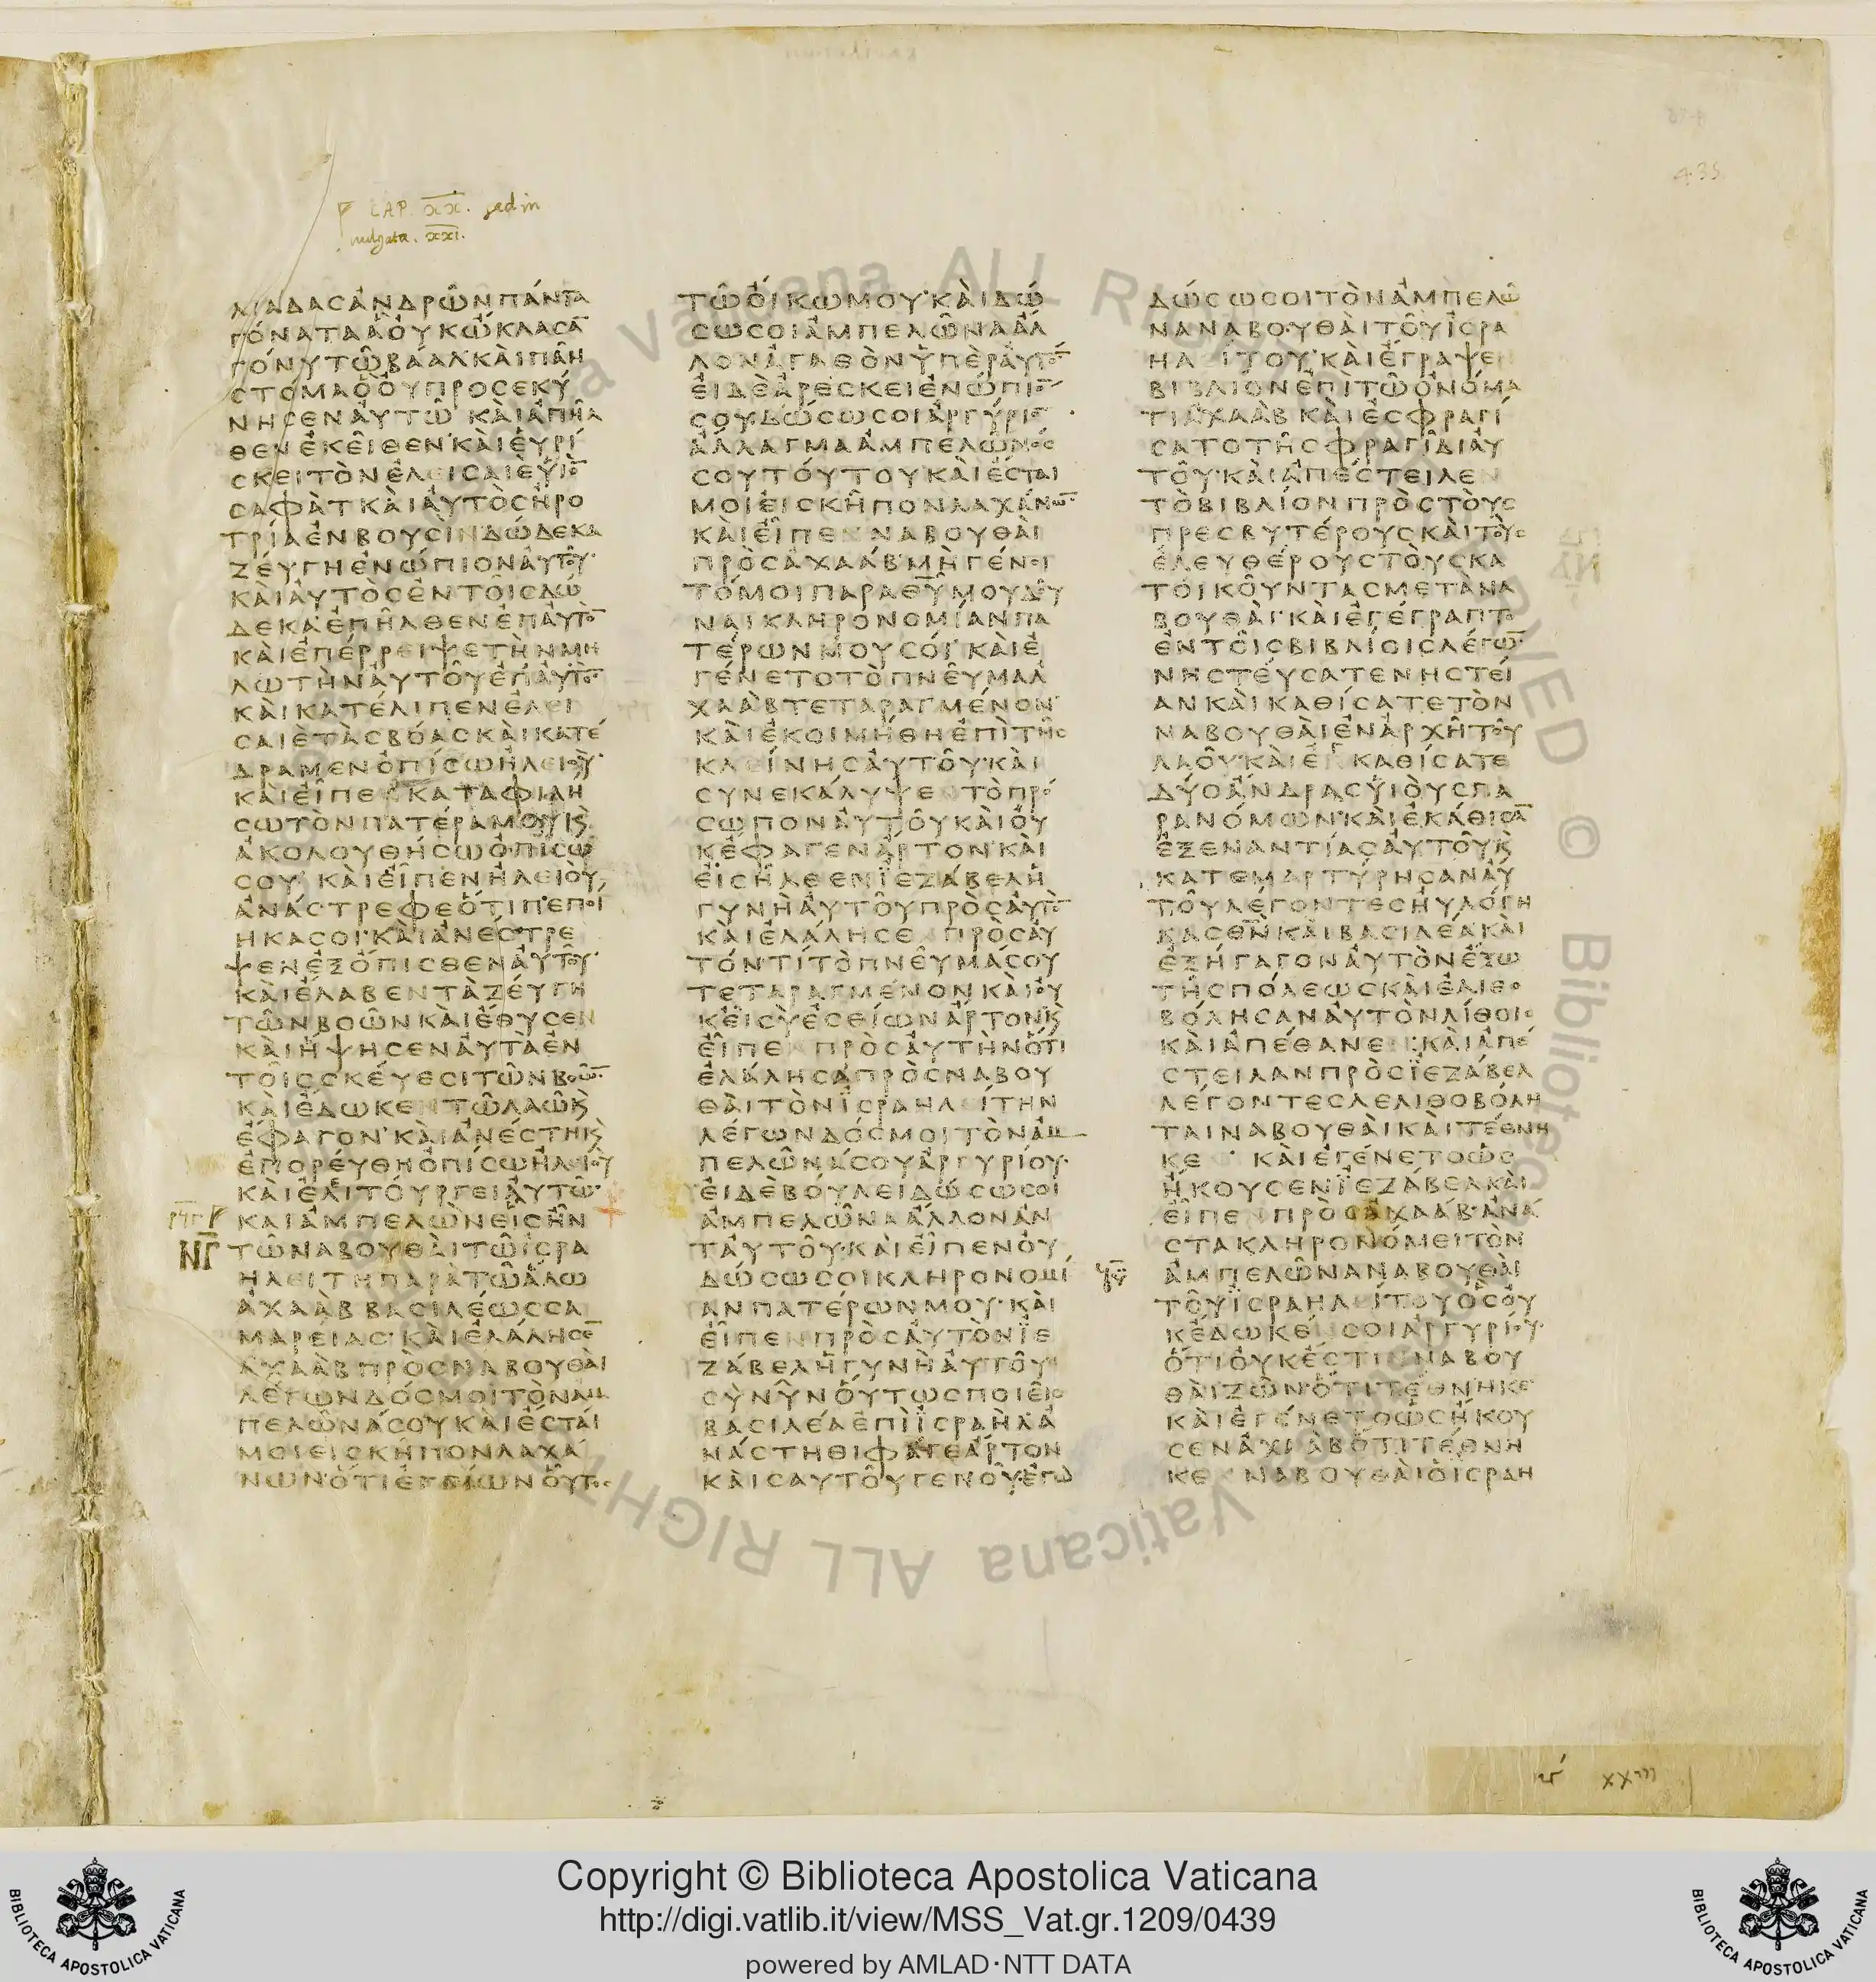 CAP. XX. sed in
vulgata. XXI.
435
ΛΙΑΔΑϹἈΝΔΡΩ͂ΝΠΆΝΤΑ
ΓΌΝΑΤΑἋΟΥΚΏΚΛΑϹΑ̅
ΓΌΝΥΤΩ͂ΒΆΑΛ·ΚΑῚΠΑ͂Η
ϹΤΌΜΑὋΟΥΠΡΟϹΕΚΎ
ΝΗϹΕΝΑΥΤΩ͂ ΚΑῚἈΠΗ͂Λ
ΘΕΝἘΚΕΙ͂ΘΕΝ·ΚΑῚΕΥΡΊ
ϹΚΕΙΤῸΝἘΛΕΙϹΑΙΕΥἹΟ̅
ϹΑΦᾺΤΚΑῚΑΥΤῸϹἨΡΟ
ΤΡΊΑἘΝΒΟΥϹῚΝΔΏΔΕΚΑ
ΖΕΎΓΗἘΝΏΠΙΟΝΑΥΤΟΥ͂·
ΚΑῚΑΥΤῸϹἘΝΤΟΙ͂ϹΔΏ
ΔΕΚΑ·ἘΠΗ͂ΛΘΕΝἘΠΑΥΤΟ̅
ΚΑῚἘΠΈΡΡΕΙΨΕΤῊΝΜΗ
ΛΩΤῊΝΑΥΤΟΥ͂ἘΠΑΥΤΟ̅
ΚΑῚΚΑΤΈΛΙΠΕΝἘΛΕΙ
ϹΑΙΕΤᾺϹΒΌΑϹΚΑῚΚΑΤΈ
ΔΡΑΜΕΝὈΠΊϹΩἨΛΕΙΟΥ͂·
ΚΑῚΕἾΠΕΝΚΑΤΑΦΙΛΗ
ϹΩΤῸΝΠΑΤΈΡΑΜΟΥΚ̀
ἈΚΟΛΟΥΘΉϹΩὈΠΊϹΩ
ϹΟΥ· ΚΑῚΕἾΠΕΝἨΛΕΙΟῪ
ἈΝΆϹΤΡΕΦΕὍΤΙΠΕΠΟΊ
ΗΚΑϹΟΙ·ΚΑῚἈΝΈϹΤΡΕ
ΨΕΝἘΞΌΠΙϹΘΕΝΑΥΤΟΥ͂·
ΚΑῚἜΛΑΒΕΝΤᾺΖΕΎΓΗ
ΤΩ͂ΝΒΟΩ͂ΝΚΑῚἜΘΥϹΕΝ
ΚΑῚἭΨΗϹΕΝΑΥΤΑἘΝ
ΤΟΙ͂ϹϹΚΕΎΕϹΙΤΩ͂ΝΒΟΩ̅
ΚΑῚἜΔΩΚΕΝΤΩ͂ΛΑΩ͂Κ̀
ἜΦΑΓΟΝ·ΚΑῚἈΝΈϹΤΗΚ̀
ἘΠΟΡΕΎΘΗὈΠΊϹΩἨΛΕΙΟΥ͂
ΚΑῚἘΛΙΤΟΎΡΓΕΙΑΥΤΩ͂·
ΚΑΙἈΜΠΕΛῺΝΕἿϹΗ͂Ν
ΝΓ
ΤΩ͂ΝΑΒΟΥΘΑῚΤΩ͂ἸϹΡΑ
ΗΛΕΙΤΗΠΑΡᾺΤΩ͂ἍΛΩ
ἈΧΑᾺΒΒΑϹΙΛΈΩϹϹΑ
ΜΑΡΕΙΑϹ·ΚΑῚἘΛΆΛΗϹΕ̅
ἈΧΑᾺΒΠΡῸϹΝΑΒΟΥΘΑῚ
ΛΈΓΩΝΔΌϹΜΟΙΤῸΝΑΜ
ΠΕΛΩ͂ΝΆϹΟΥΚΑῚἜϹΤΑΙ
ΜΟΙΕΙϹΚΗ͂ΠΟΝΛΑΧΆ
ΝΩΝ·ὍΤΙἘΓΓΕΊΩΝΟὟΤΟϹ
ΤΩ͂ΟἼΚΩΜΟΥ·ΚΑῚΔΏ
ϹΩϹΟΙἈΜΠΕΛΩ͂ΝΑἌΛ
ΛΟΝἈΓΑΘῸΝΥΠῈΡΑΥΤΟ̅
ΕΙΔῈἈΡΕϹΚΕΙἘΝΏΠΙΟ̅
ϹΟΥ·ΔΏϹΩϹΟΙἈΡΓΎΡΙΟ̅
ἌΛΛΑΓΜΑἈΜΠΕΛΩ͂ΝΟϹ
ϹΟΥΤΟΎΤΟΥΚΑῚἜϹΤΑΙ
ΜΟΙΕΙϹΚΗ͂ΠΟΝΛΑΧΆΝΩ̅
ΚΑῚΕἾΠΕΝΝΑΒΟΥΘΑῚ
ΠΡῸϹἈΧΑΆΒ·ΜῊΓΈΝΟΙ
ΤΌΜΟΙΠΑΡΑΘ̅Υ̅ΜΟΥΔΟΥ͂
ΝΑΙΚΛΗΡΟΝΟΜΊΑΝΠΑ
ΤΈΡΩΝΜΟΥϹΟΊ· ΚΑῚἘ
ΓΈΝΕΤΟΤῸΠΝΕΥ͂ΜΑἈ
ΧΑᾺΒΤΕΤΑΡΑΓΜΈΝΟΝ·
ΚΑῚἘΚΟΙΜΉΘΗἘΠῚΤΗ͂Ϲ
ΚΛΕΊΝΗϹΑΥΤΟΥ͂·ΚΑῚ
ϹΥΝΕΚΆΛΥΨΕΝΤῸΠΡΌ
ϹΩΠΟΝΑΥΤΟΥ͂ΚΑῚΟΥ
ΚἜΦΑΓΕΝἌΡΤΟΝ·ΚΑῚ
ΕΙϹΗ͂ΛΘΕΝΪΕΖΆΒΕΛἩ
ΓΥΝῊΑΥΤΟΥ͂ΠΡῸϹΑΥΤΟ̅
ΚΑῚἘΛΆΛΗϹΕΝΠΡῸϹΑΥ
ΤΌΝ·ΤΊΤῸΠΝΕΥ͂ΜΆϹΟΥ
ΤΕΤΑΡΑΓΜΈΝΟΝΚΑῚΟΥ
ΚΕἸϹῪἘϹΘΕΊΩΝἌΡΤΟΝΚ̀
ΕἾΠΕΝΠΡῸϹΑΥΤῊΝὍΤΙ
ἘΛΆΛΗϹΑΠΡῸϹΝΑΒΟΥ
ΘΑῚΤῸΝΪϹΡΑΗΛΕΊΤΗΝ
ΛΈΓΩΝΔΌϹΜΟΙΤῸΝΑΜ
ΠΕΛΩ͂ΝΆϹΟΥἈΡΓΥΡΊΟΥ·
ΕΙΔῈΒΟΎΛΕΙΔΏϹΩϹΟΙ
ἈΜΠΕΛΩ͂ΝΑἌΛΛΟΝἈΝ
ΤΑΥΤΟΥ͂·ΚΑῚΕἾΠΕΝΟΥ
ΔΏϹΩϹΟΙΚΛΗΡΟΝΟΜΊ
ΑΝΠΑΤΈΡΩΝΜΟΥ·ΚΑῚ
ΕἾΠΕΝΠΡῸϹΑΥΤῸΝΪΕ
ΖΆΒΕΛἩΓΥΝῊΑΥΤΟΥ͂
ϹῪΝΥ͂ΝΟὝΤΩϹΠΟΙΕΙ͂Ϲ
ΒΑϹΙΛΈΑἘΠῚΪϹΡΑῊΛἈ
ΝΆϹΤΗΘΙΦΆΓΕἌΡΤΟΝ
ΚΑῚϹΑΥΤΟΥ͂ΓΕΝΟΥ͂·ἘΓΩ
ΔΏϹΩϹΟΙΤῸΝἈΜΠΕΛΩ̅
ΝΑΝΑΒΟΥΘΑῚΤΟΥ͂ΪϹΡΑ
ΗΛΕΊΤΟΥ·ΚΑῚἜΓΡΑΨΕΝ
ΒΙΒΛΊΟΝἘΠῚΤΩ͂ὈΝΌΜΑ
ΤΙἈΧΑᾺΒ ΚΑῚἘϹΦΡΑΓΊ
ϹΑΤΟΤΗ͂ϹΦΡΑΓΙ͂ΔΙΑΥ
ΤΟΥ͂·ΚΑῚἈΠΈϹΤΕΙΛΕΝ
ΤῸΒΙΒΛΊΟΝΠΡῸϹΤΟῪϹ
ΠΡΕϹΒΥΤΈΡΟΥϹΚΑῚΤΟῪϹ
ἘΛΕΥΘΈΡΟΥϹΤΟῪϹΚΑ
ΤΟΙΚΟΥ͂ΝΤΑϹΜΕΤᾺΝΑ
ΒΟΥΘΑΊ·ΚΑῚἘΓΈΓΡΑΠΤΟ
ἘΝΤΟΙ͂ϹΒΙΒΛΊΟΙϹΛΈΓΩ̅
ΝΗϹΤΕΎϹΑΤΕΝΗϹΤΕΊ
ΑΝΚΑῚΚΑΘΊϹΑΤΕΤῸΝ
ΝΑΒΟΥΘΑῚἘΝἈΡΧΗ͂ΤΟΥ
ΛΑΟΥ͂·ΚΑῚἘΓΚΑΘΊϹΑΤΕ
ΔΎΟἌΝΔΡΑϹΥἹΟῪϹΠΑ
ΡΑΝΌΜΩΝ·ΚΑῚἘΚΆΘΙϹΑ̅
ἘΞΕΝΑΝΤΊΑϹΑΥΤΟΥ͂Κ̀
ΚΑΤΕΜΑΡΤΎΡΗϹΑΝΑΥ
ΤΟΥ͂ΛΈΓΟΝΤΕϹΗΥΛΌΓΗ
ΚΑϹΘ̅Ν̅ΚΑῚΒΑϹΙΛΈΑΚΑῚ
ἘΞΉΓΑΓΟΝΑΥΤῸΝἜΞΩ
ΤΗ͂ϹΠΌΛΕΩϹΚΑῚἘΛΙΘΟ
ΒΌΛΗϹΑΝΑΥΤῸΝΛΊΘΟΙϹ
ΚΑῚἈΠΈΘΑΝΕΝ·ΚΑῚἈΠΈ
ϹΤΕΙΛΑΝΠΡῸϹΪΕΖΆΒΕΛ
ΛΈΓΟΝΤΕϹΛΕΛΙΘΟΒΌΛΗ
ΤΑΙΝΑΒΟΥΘΑῚΚΑῚΤΈΘΝΗ
ΚΕΝ· ΚΑῚἘΓΈΝΕΤΟὩϹ
ἬΚΟΥϹΕΝΪΕΖΆΒΕΛΚΑῚ
ΕἾΠΕΝΠΡῸϹἈΧΑΆΒ·ἈΝΆ
ϹΤΑΚΛΗΡΟΝΌΜΕΙΤῸΝ
ἈΜΠΕΛΩ͂ΝΑΝΑΒΟΥΘΑῚ
ΤΟΥ͂ΪϹΡΑΗΛΕΊΤΟΥὋϹΟΥ
ΚἜΔΩΚΕΝϹΟΙἈΡΓΥΡΊΟΥ·
ὍΤΙΟΥΚἜϹΤΙΝΝΑΒΟΥ
ΘΑῚΖΩ͂Ν·ὍΤΙΤΈΘΝΗΚΕ
ΚΑῚἘΓΈΝΕΤΟὩϹἬΚΟΥ
ϹΕΝἈΧΑᾺΒὍΤΙΤΈΘΝΗ
ΚΕΝΝΑΒΟΥΘΑῚὉΪϹΡΑΗ
Copyright © Biblioteca Apostolica Vaticana
http://digi.vatlib.it/view/MSS_Vat.gr.1209/0439
powered by AMLAD·NTT DATA
BIBLIOTECA APOSTOLICA VATICANA
BIBLIOTECA APOSTOLICA VATICANA